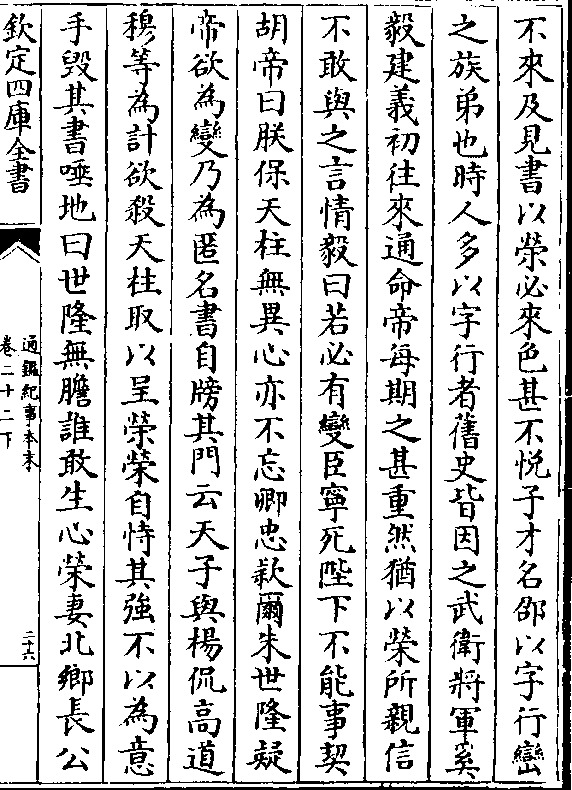 不來及見書以榮必來色甚不悅子才名邵以字行巒
之族弟也時人多以字行者舊史皆因之武衛將軍奚
毅建義初往來通命帝每期之甚重然猶以榮所親信
不敢與之言情毅曰若必有變臣寧死陛下不能事契
胡帝曰朕保天柱無異心亦不忘卿忠款爾朱世隆疑
帝欲為變乃為匿名書自牓其門云天子與楊侃高道
穆等為計欲殺天柱取以呈榮榮自恃其強不以為意
手毀其書唾地曰世隆無膽誰敢生心榮妻北鄉長公
欽定四庫全書
通鑑紀事本末
卷二十二下
二十六